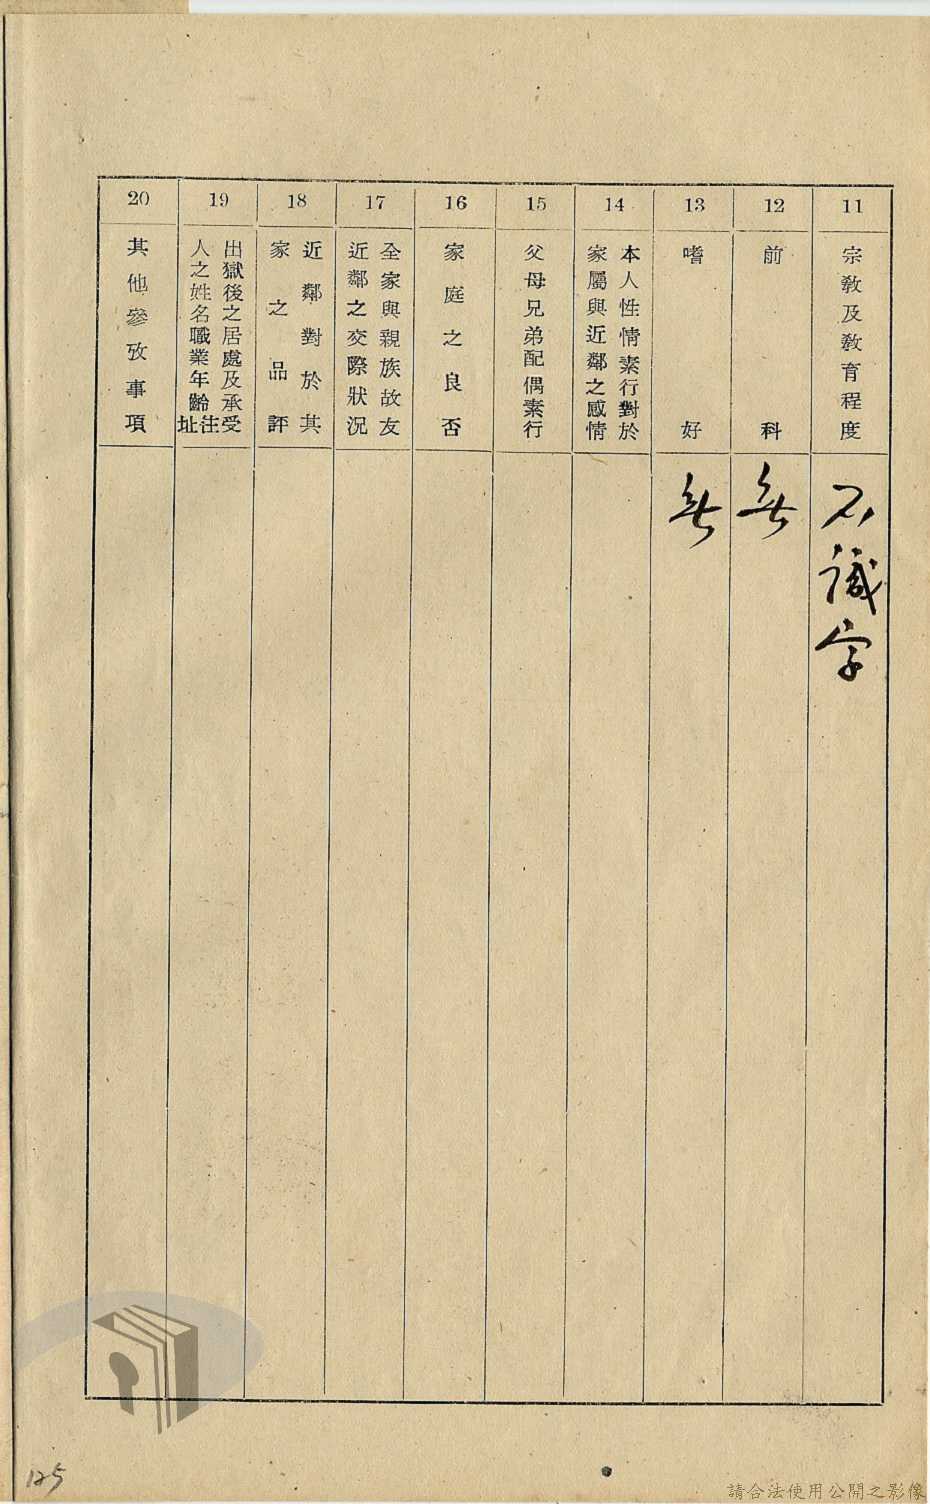 11
宗教及教育程度
不識字
12
前科
無
13
嗜好
無
14
本人性情素行對於
家屬與近鄰之感情
15
父母兄弟配偶素行
16
家庭之良否
17
全家與親族故友
近鄰之交際狀況
18
近鄰對於其
家之品評
19
出獄後之居處及承受
人之姓名職業年齡住址
20
其他參攷事項
125
請合法使用公開之影像